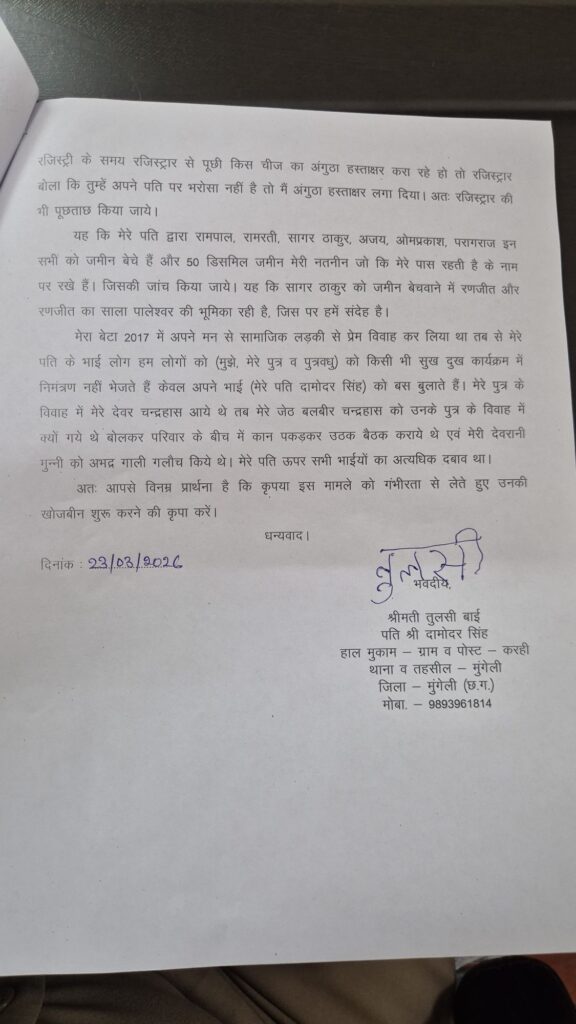 रजिस्ट्री के समय रजिस्ट्रार से पूछी किस चीज का अंगुठा हस्ताक्षर करा रहे हो तो रजिस्ट्रार
बोला कि तुम्हें अपने पति पर भरोसा नहीं है तो मैं अंगुठा हस्ताक्षर लगा दिया। अतः रजिस्ट्रार की
भी पूछताछ किया जाये।
यह कि मेरे पति द्वारा रामपाल, रामरती, सागर ठाकुर, अजय, ओमप्रकाश, परागराज इन
सभीं को जमीन बेचे हैं और 50 डिसमिल जमीन मेरी नतनीन जो कि मेरे पास रहती है के नाम
पर रखे हैं। जिसकी जांच किया जाये। यह कि सागर ठाकुर को जमीन बेचवाने में रणजीत और
रणजीत का साला पालेश्वर की भूमिका रही है, जिस पर हमें संदेह है।
मेरा बेटा 2017 में अपने मन से सामाजिक लड़की से प्रेम विवाह कर लिया था तब से मेरे
पति के भाई लोग हम लोगों को (मुझे, मेरे पुत्र व पुत्रवधु) को किसी भी सुख दुख कार्यक्रम में
निमंत्रण नहीं भेजते हैं केवल अपने भाई (मेरे पति दामोदर सिंह) को बस बुलाते हैं। मेरे पुत्र के
विवाह में मेरे देवर चन्द्रहास आये थे तब मेरे जेठ बलबीर चन्द्रहास को उनके पुत्र के विवाह में
क्यों गये थे बोलकर परिवार के बीच में कान पकड़कर उठक बैठक कराये थे एवं मेरी देवरानी
मुन्नी को अभद्र गाली गलौच किये थे। मेरे पति ऊपर सभी भाईयों का अत्यधिक दबाव था।
अतः आपसे विनम्र प्रार्थना है कि कृपया इस मामले को गंभीरता से लेते हुए उनकी
खोजबीन शुरू करने की कृपा करें।
धन्यवाद।
दिनांक : 23/03/2026
तुलसी
भवदीय,
श्रीमती तुलसी बाई
पति श्री दामोदर सिंह
हाल मुकाम – ग्राम व पोस्ट – करही
थाना व तहसील – मुंगेली
जिला – मुंगेली (छ.ग.)
मोबा. – 9893961814